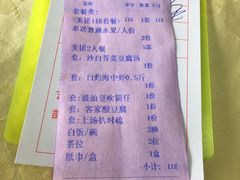 名称 数量 金额
套餐类:
<美团118套餐> 1套 118
奉送普通水果/人份
2份
美团2人餐 1席
套: 沙白芥菜豆腐汤
1份
套: 白灼海中虾0.5斤
1份
套: 豉油皇吹筒仔 1份
套: 客家酿豆腐 1份
套: 上汤扒时蔬 1份
白饭/碗 2碗
茶位 2位
纸巾/盒 1盒
小计: 118